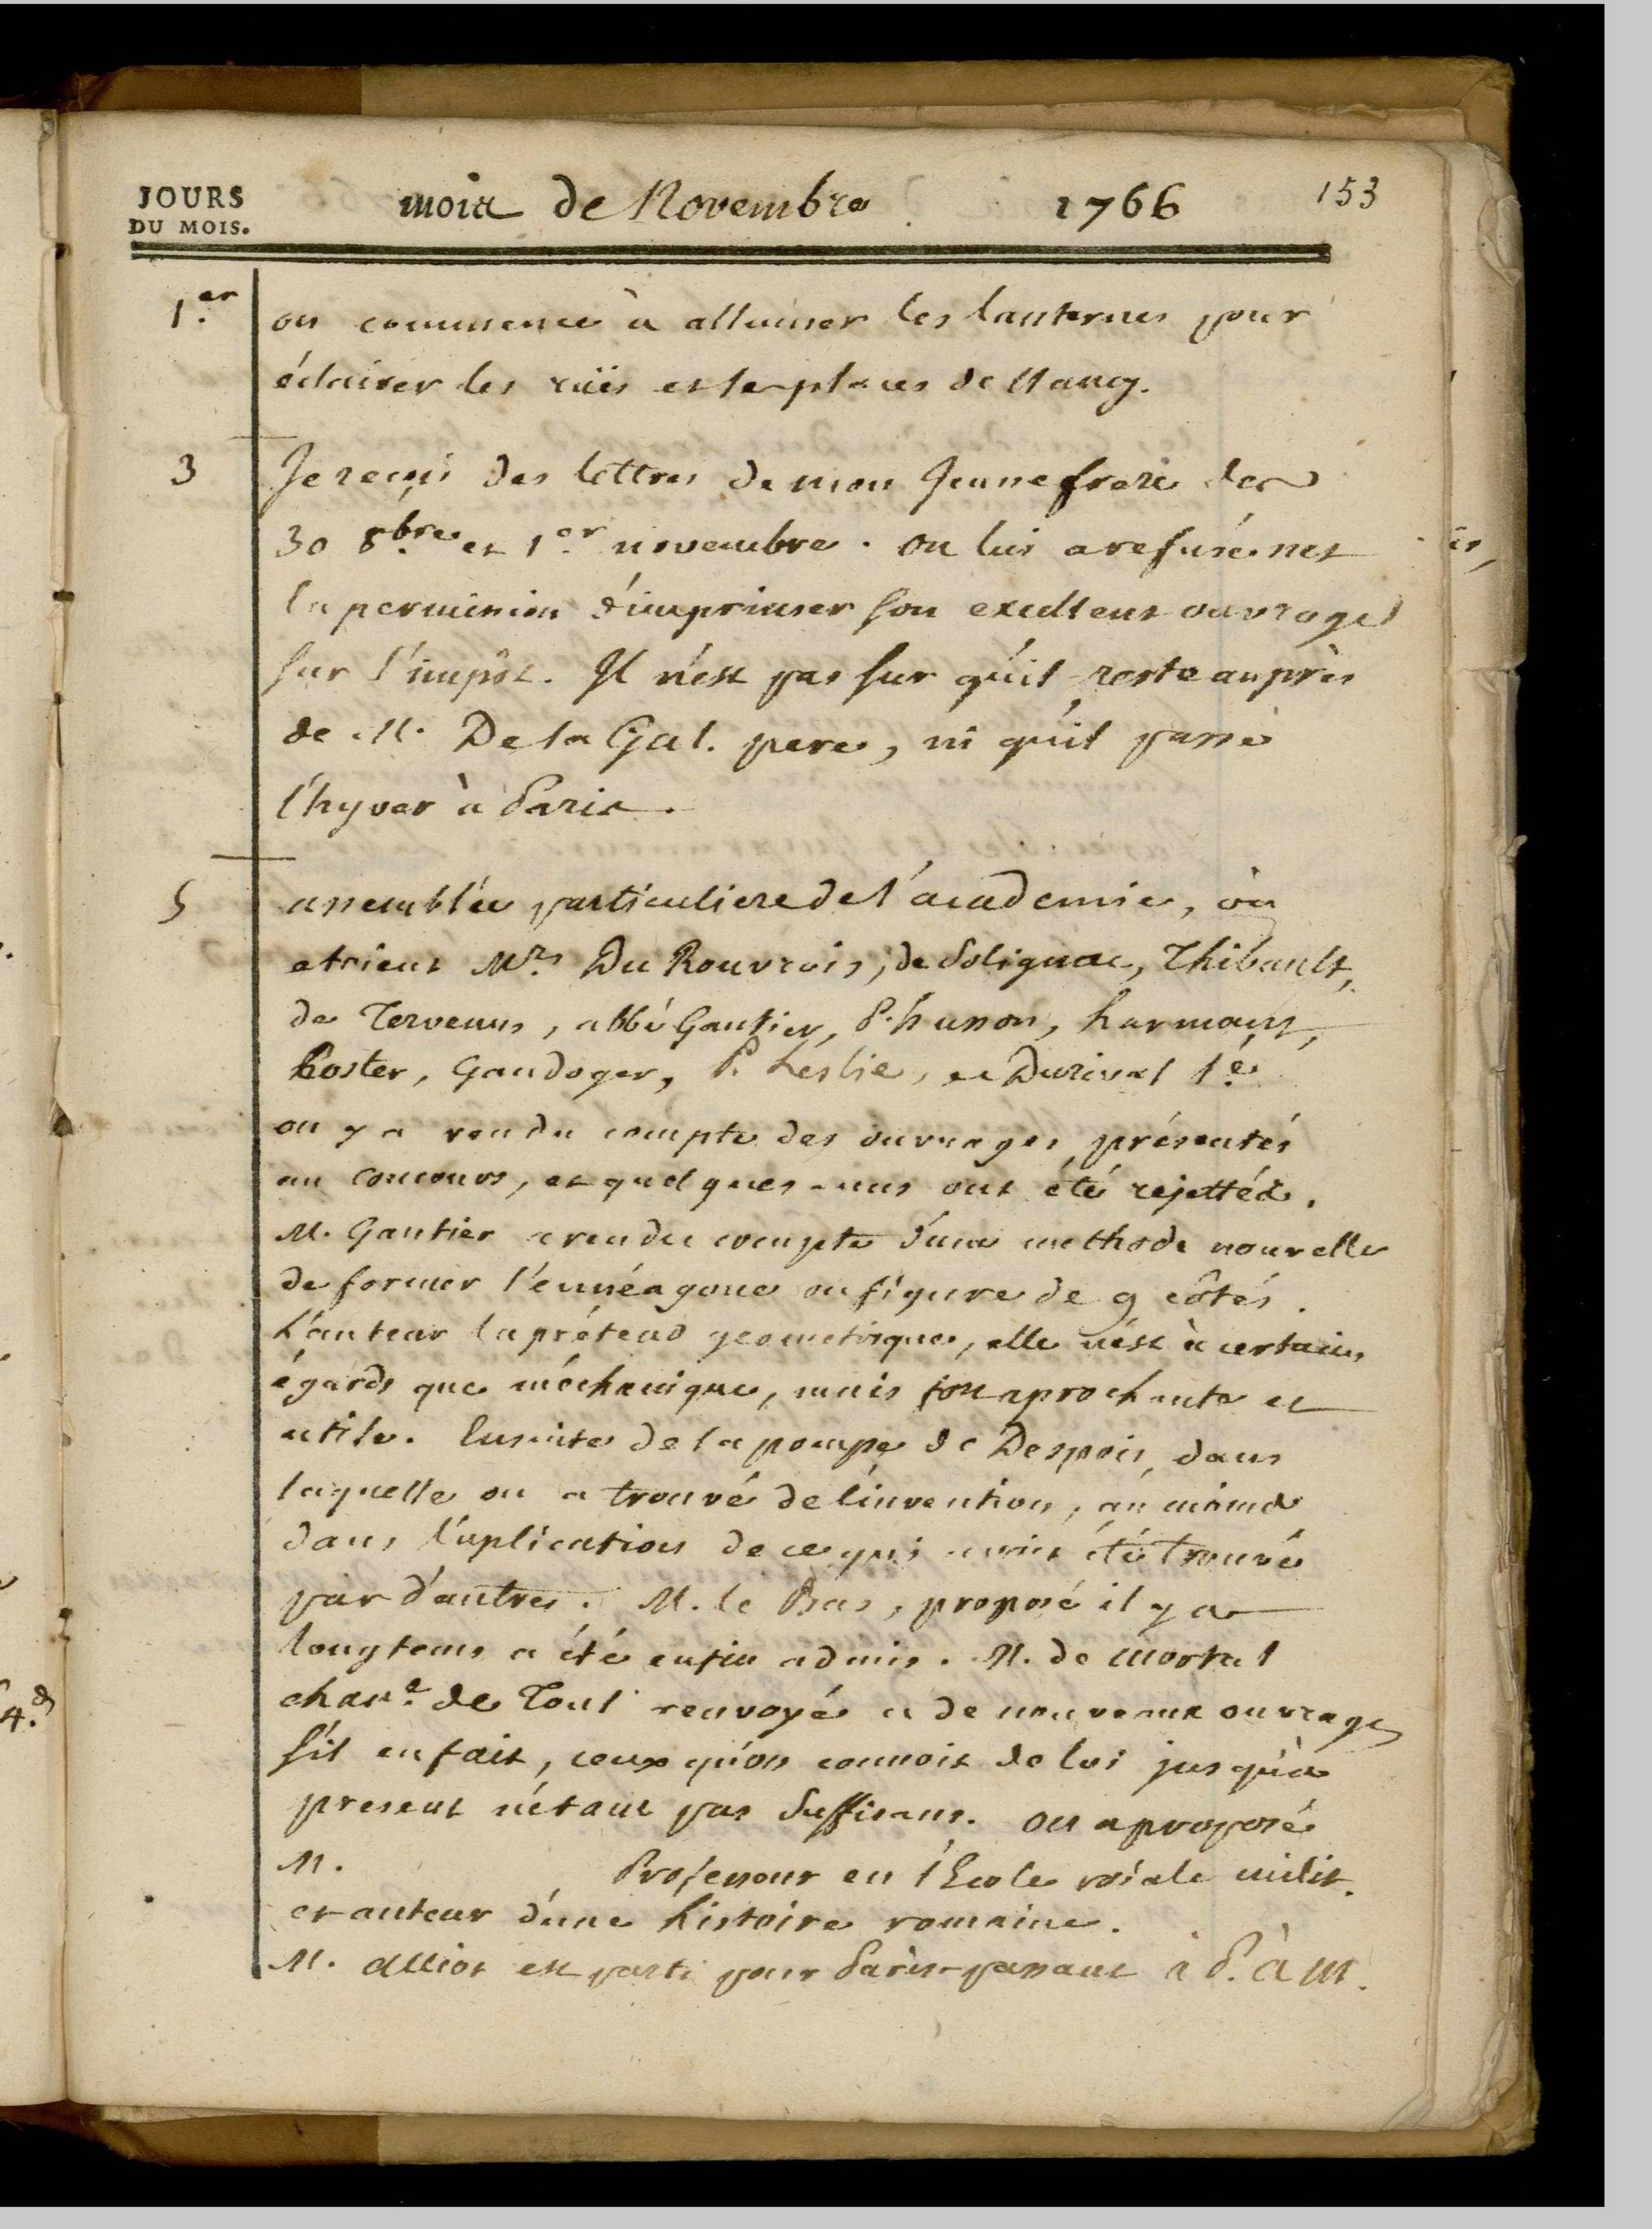 JOURS
DU MOIS.
mois de Novembre 1766 153
1.er on commence à allumer les lanternes pour
éclairer les ruës et les places de Nancy.
3 Je reçois des lettres de mon Jeune frere des
30 8bre et 1.er novembre. on lui a refusé net
la permission d'imprimer son excellent ouvrage
sur l'impôt. Il n'est pas sur qu'il reste auprès
de M. De la Gal. pere, ni qu'il passe
l'hyver à Paris.
5 assemblée particuliere de l'academie, où
etoient Mrs Du Rouvrois, de Solignac, Thibault,
de Tervenus, abbé Gautier, P. husson, harmant,
Coster, Gandoger, P. Leslie, et Durival l'é.
on y a rendu compte des ouvrages présentés
au concours, et quelques-uns ont été rejettés.
M. Gautier a rendu compte d'une methode nouvelle
de former l'ennéagone ou figure de 9 côtés.
L'auteur la prétend geometrique, elle n'est à certains
égards que méchanique, mais fort aprochante et
utile. Ensuite de la pompe de Despois, dans
laquelle on a trouvé de l'invention, au moins
dans l'aplication de ce qui avoit été trouvé
par d'autres. M. le Bas, proposé il y a
longtems a été enfin admis. M. de Mortal
chan.e de Toul renvoyé a de nouveaux ouvrages
s'il en fait, ceux qu'on connoit de lui jusqu'à
present n'étant pas suffisans. on a proposé
M. Professeur en l'Ecole roïale milit.
et auteur d'une histoire romaine.
M. alliot est parti pour Paris passant à P. à M.
4.